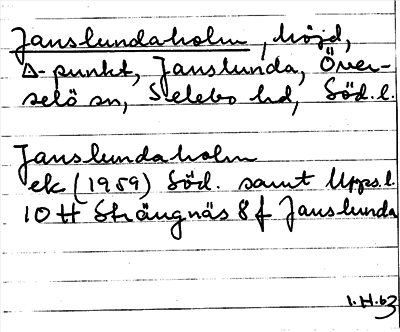 Janslundaholm, höjd,
Δ-punkt, Janslunda, Över-
selö sn, Selebo hd, Söd.l.
Janslundaholm
ek (1959) Söd. samt Upps.l.
10 H Strängnäs 8 f Janslunda
1.H.63